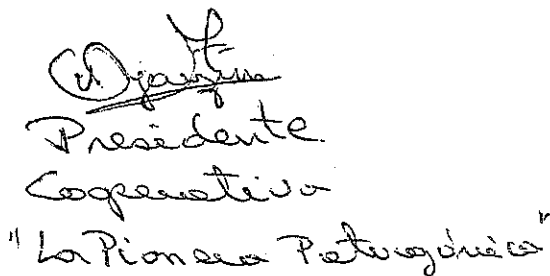 Presidente
Cooperativa
"La Pionera Patagónica"